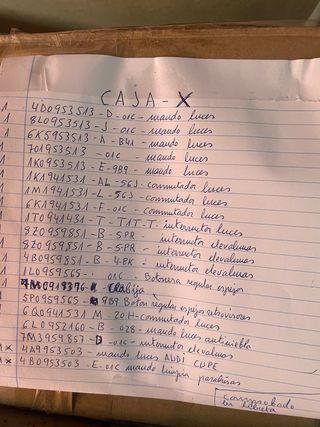 CAJA-X
1 4D0953513-D-01C-mando luces
1 8L0953513-J-01C-mando luces
1 6K5953513-A-B41-mando luces
1 701953513-01C-mando luces
1 1K0953513-E-9B9-mando luces
1 1K1941531-AL-5GJ-conmutador luces
1 1M1941531-L-5GJ-conmutador luces
1 6K1941531-F-01C-conmutador luces
1 1T0941431-T-T1T-T-interruptor luces
1 8Z0959851-B-5PR-interruptor elevalunas
1 8Z0959551-B-5PR-interruptor elevalunas
1 4B0959851-B-4PK-interruptor elevalunas
1 1L0959565-01C-Botonera regular espejos
1 clavija
1 5P0959565-9B9 Boton regular espejos retrovisores
1 6Q0941531 M-20H-conmutador luces
1 6L0952160-B-028-mando luces antiniebla
1 7M3959857-D-01C-interruptor elevalunas
1x 4A9953503-mando luces AUDI CUPE
1x 4B0953503-E-01C mando limpia parabrisas
comprobado
en libreta